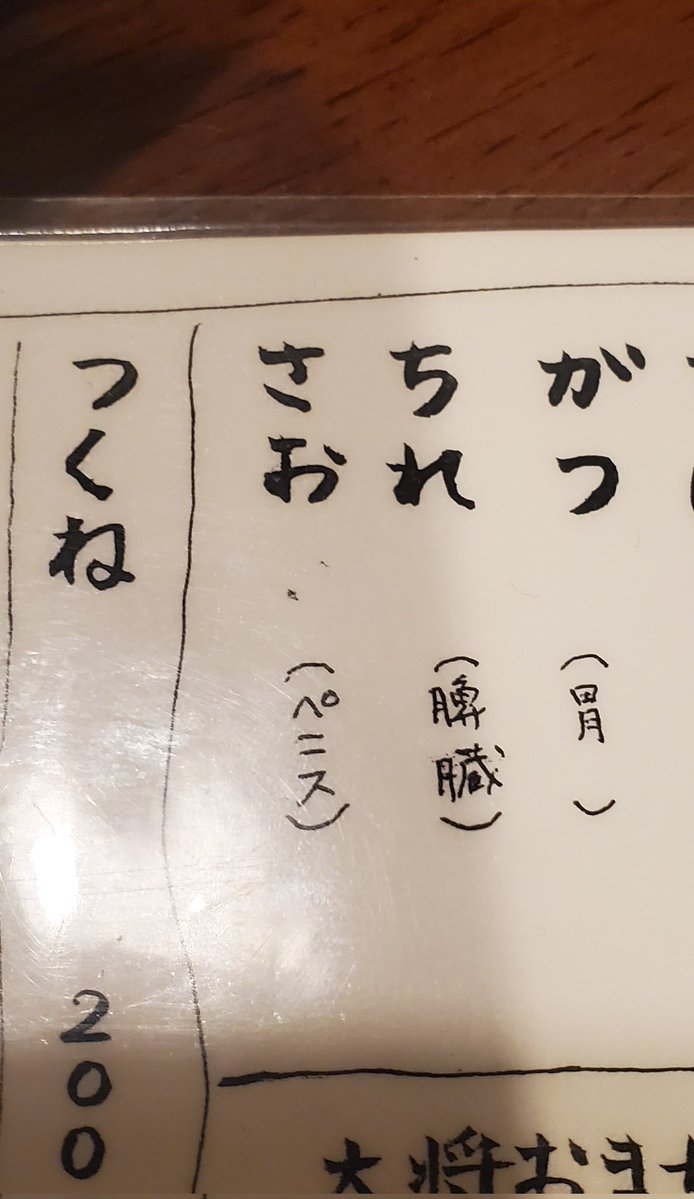 がつ (胃)
ちれ (脾臓)
さお (ペニス)
つくね 200
大将おま